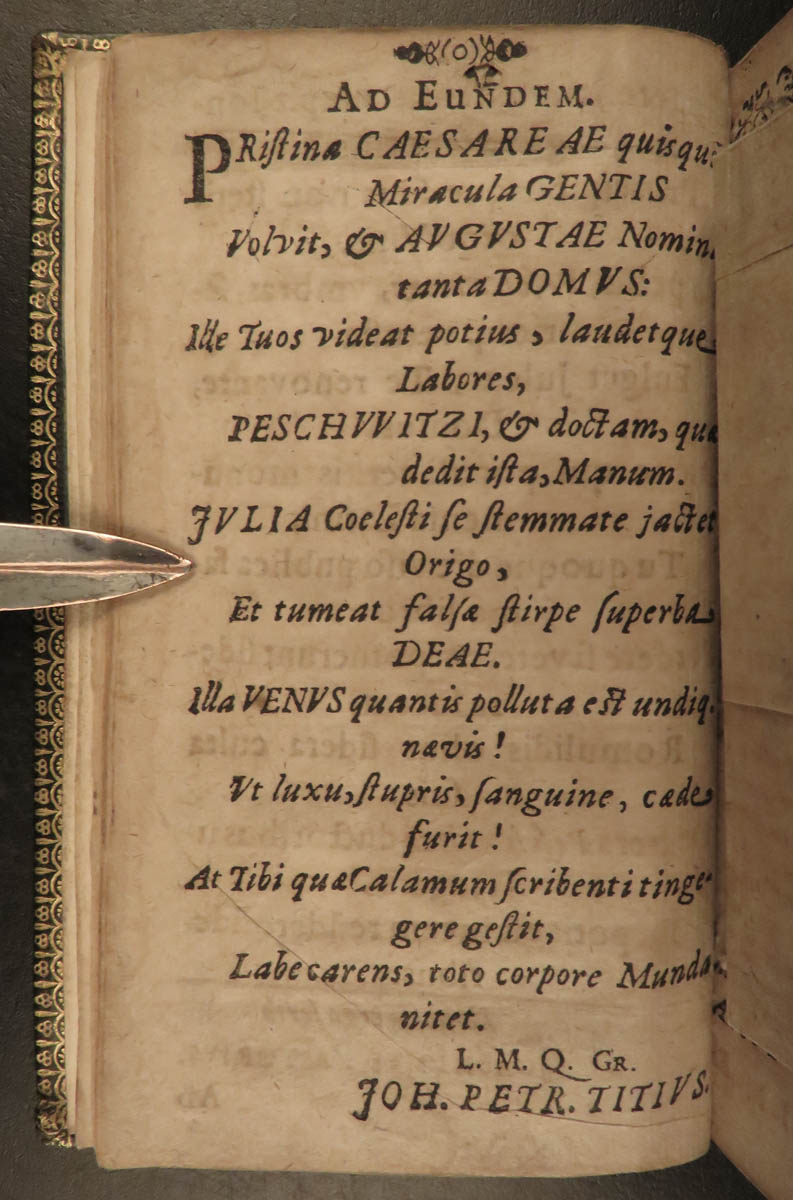 AD EUNDEM.
PRiſtina CAESAREAE quisqui
Miracula GENTIS
Volvit, & AVGVSTAE Nomin
tanta DOMVS:
Ille Tuos videat potius, laudetque
Labores,
PESCHVVITZI, & doctam, quæ
dedit iſta, Manum.
JVLIA Coeleſti ſe ſtemmate jactet
Origo,
Et tumeat falſæ ſtirpe ſuperba
DEAE.
Illa VENVS quantis polluta eſt undiq;
nævis!
Vt luxu, ſtupris, ſanguine, cæde
furit!
At Tibi quæ Calamum ſcribenti tinge-
gere geſtit,
Labe carens, toto corpore Munda
nitet.
L. M. Q. GR.
JOH. PETR. TITIVS.